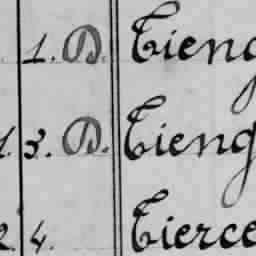 1. D. Tieng
1. 3. D. Tieng
2. 4. Tierce